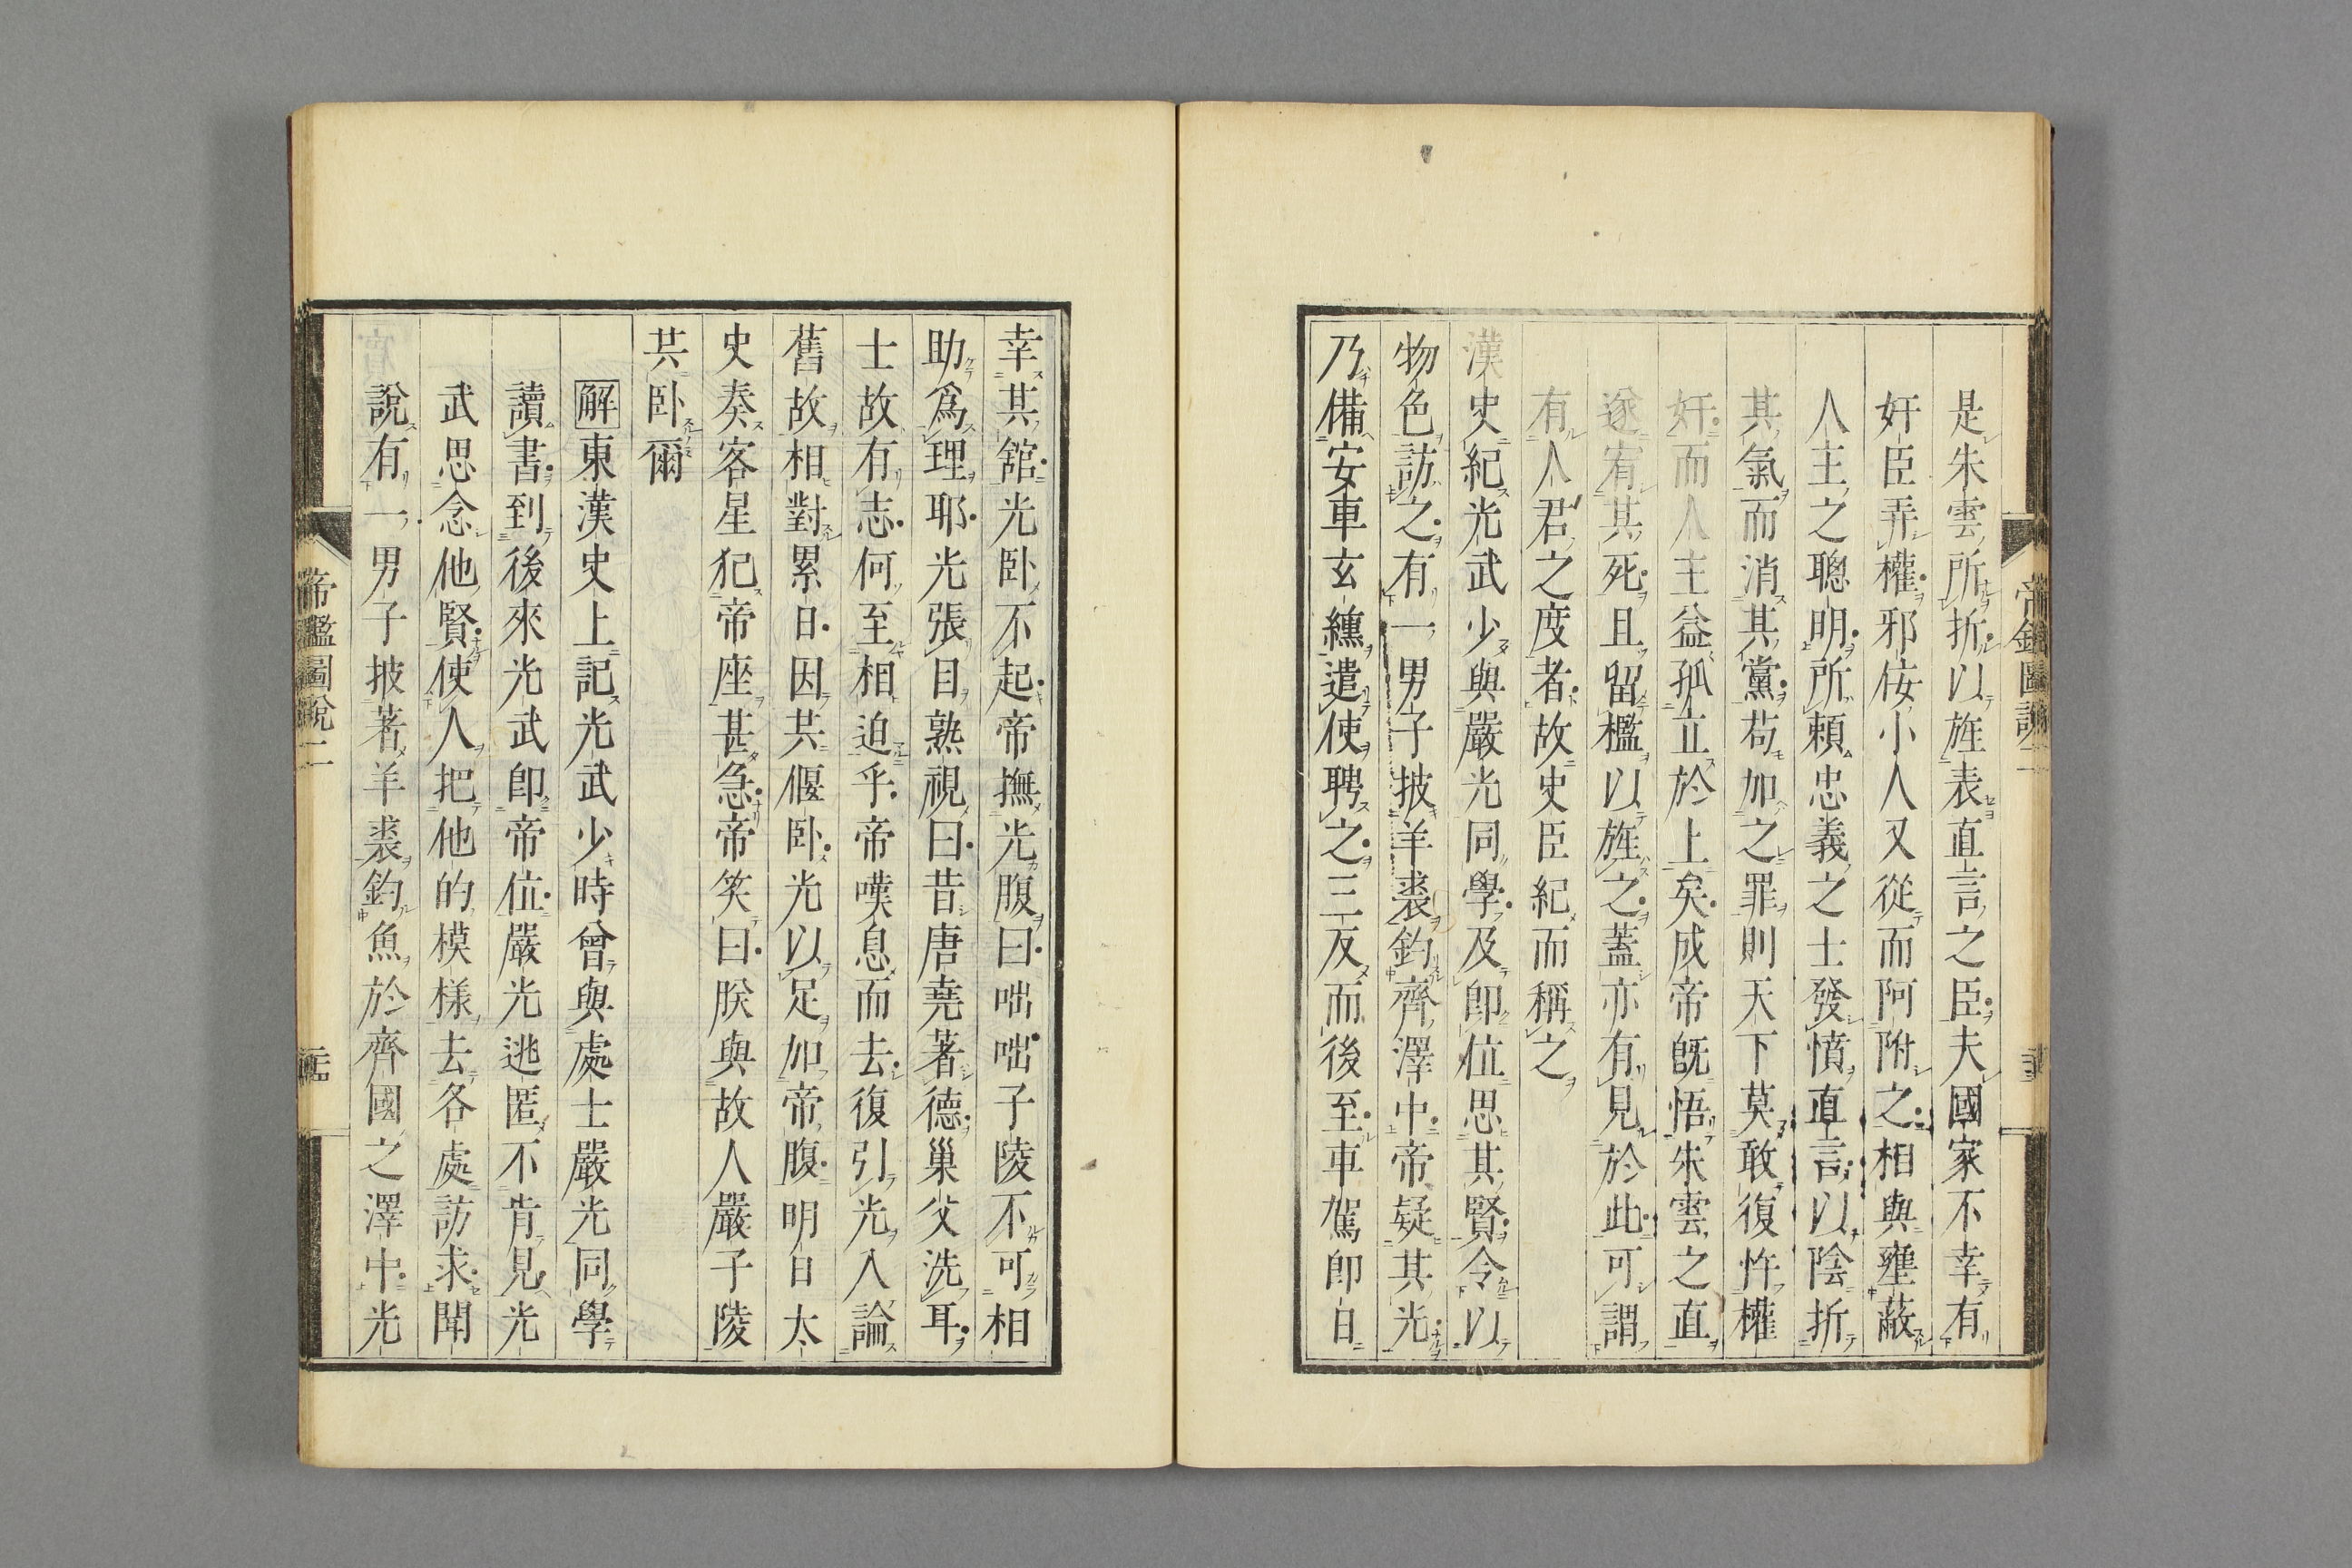 是朱雲所折以旌表直言之臣夫國家不幸有
奸臣弄權邪佞小人又從而阿附之相與壅蔽
人主之聰明所賴忠義之士發憤直言以陰折
其氣而消其黨苟加之罪則天下莫敢復忤權
奸而人主益孤立於上矣成帝既悟朱雲之直
遂宥其死且留檻以旌之蓋亦有見於此可謂
有人君之度者故史臣紀而稱之
漢史紀光武少與嚴光同學及即位思其賢令以
物色訪之有一男子披羊裘釣齊澤中帝疑其光
乃備安車玄纁遣使聘之三反而後至車駕即日
幸其舘光卧不起帝撫光腹曰咄咄子陵不可相
助為理耶光張目熟視曰昔唐堯著德巢父洗耳
士故有志何至相迫乎帝嘆息而去復引光入論
舊故相對累日因共偃卧光以足加帝腹明日太
史奏客星犯帝座甚急帝笑曰朕與故人嚴子陵
共卧爾
解東漢史上記光武少時曾與處士嚴光同學
讀書到後來光武即帝位嚴光逃匿不肯見光
武思念他賢使人把他的模樣去各處訪求聞
說有一男子披著羊裘釣魚於齊國之澤中光
帝鑑圖說二